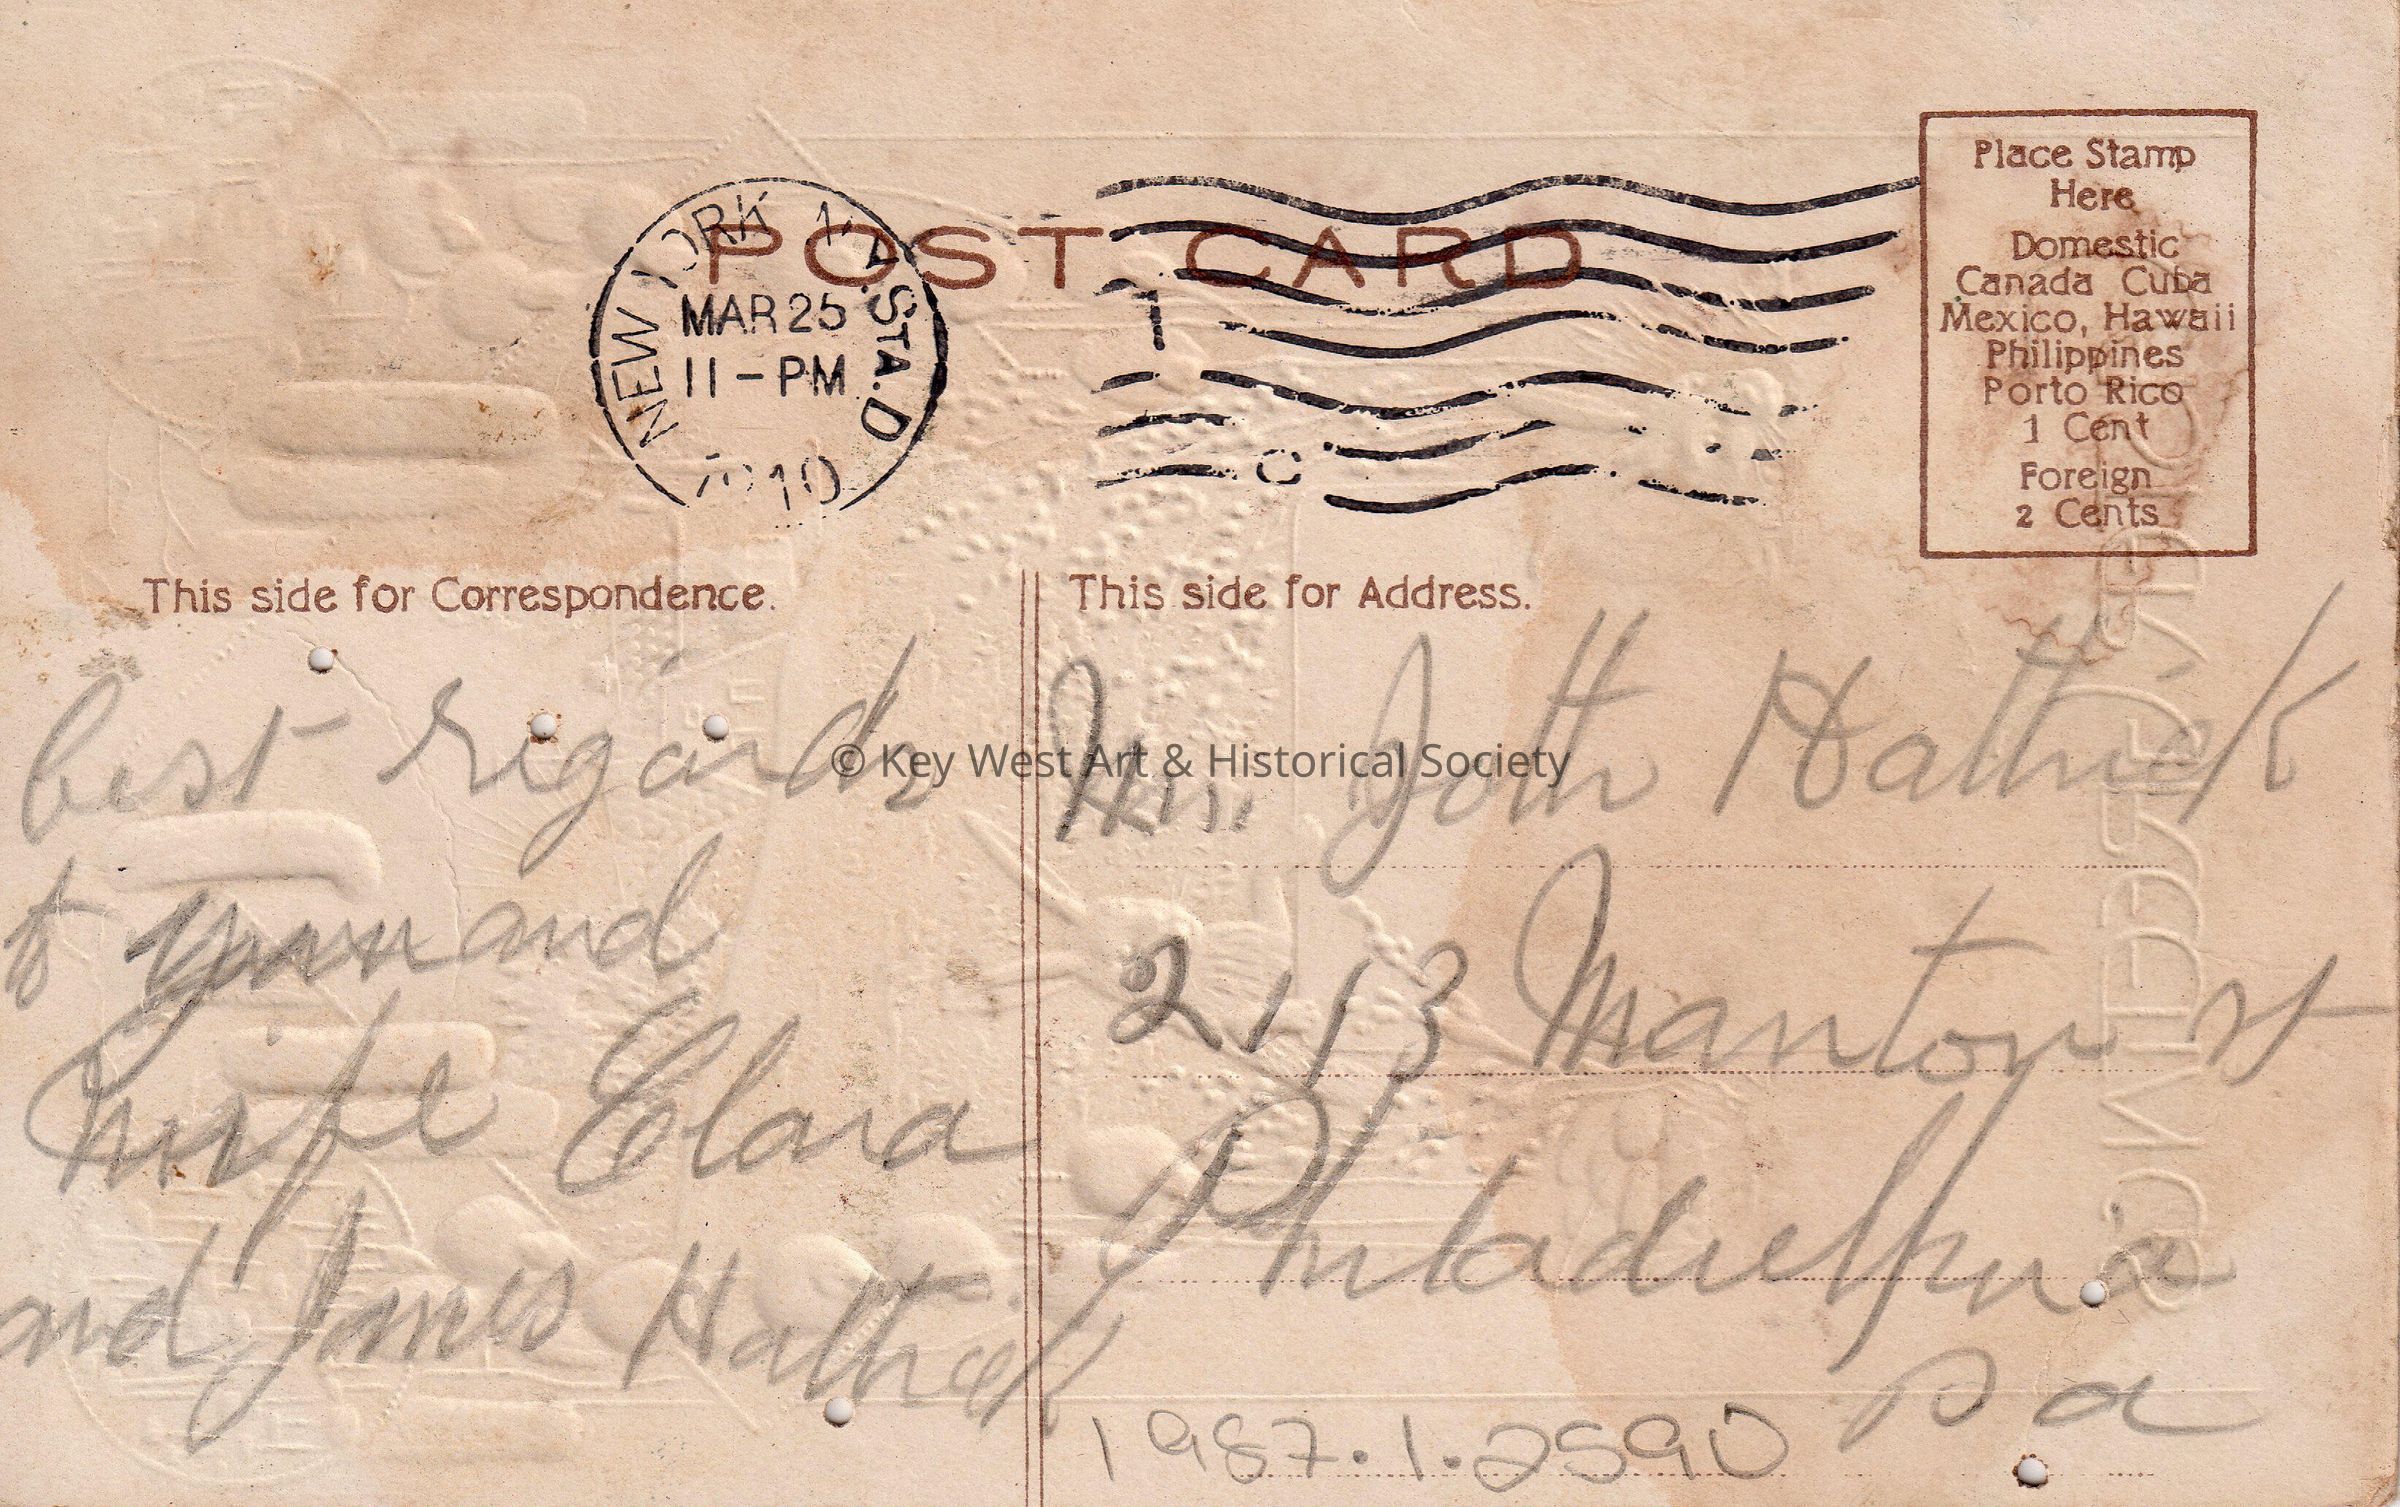 POST CARD
NEW YORK, N.Y. STA. D
MAR 25
11 - PM
1910
Place Stamp
Here
Domestic
Canada Cuba
Mexico, Hawaii
Philippines
Porto Rico
1 Cent
Foreign
2 Cents
This side for Correspondence.
best regards
to your and
wife Clara
and James Hathrick
This side for Address.
John Hathrick
2113 Manton st
Philadelphia
Pa
1987.1.2590
© Key West Art & Historical Society